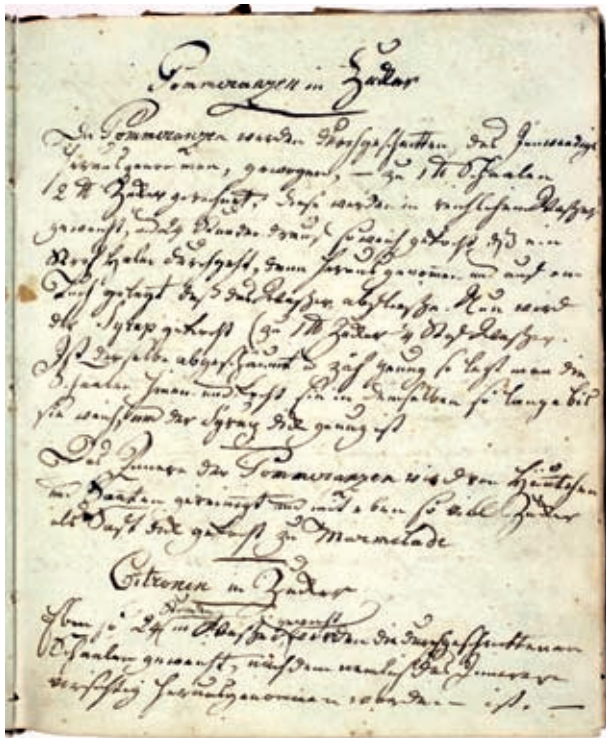 Pommeranzen in Zucker
Die Pommeranzen werden durchgeschnitten, das Inwendige
herausgenommen, gewogen, – zu 1 ℔ Schaalen
2 ℔ Zucker gerechnet. diese werden in reichlichem Waßer
geweicht, 24 Stunden drauf so weich gekocht, daß ein
Stroh Halm durchgeht, dann herausgenommen und auf ein
Tuch gelegt daß das Waßer abfließe. Nun wird
der Syrap gekocht (zu 1 ℔ Zucker Waßer.
Ist derselbe abgeschäumt zäh genug so legt man die
Schaalen hinein und kocht sie in demselben so lange bis
sie weich, und der Syrap dick genug ist
Das Innere der Pommeranzen wird von Häutchen
und Saaten gereinigt und mit eben so viel Zucker
als Saft dick gekocht zu Marmelade
Citronen in Zucker
Eben so 24 Stunden in Waßer geweicht werden die durchgeschnittenen
Schaalen geweicht, nachdem das Innere
vorsichtig herausgenommen worden – ist. –